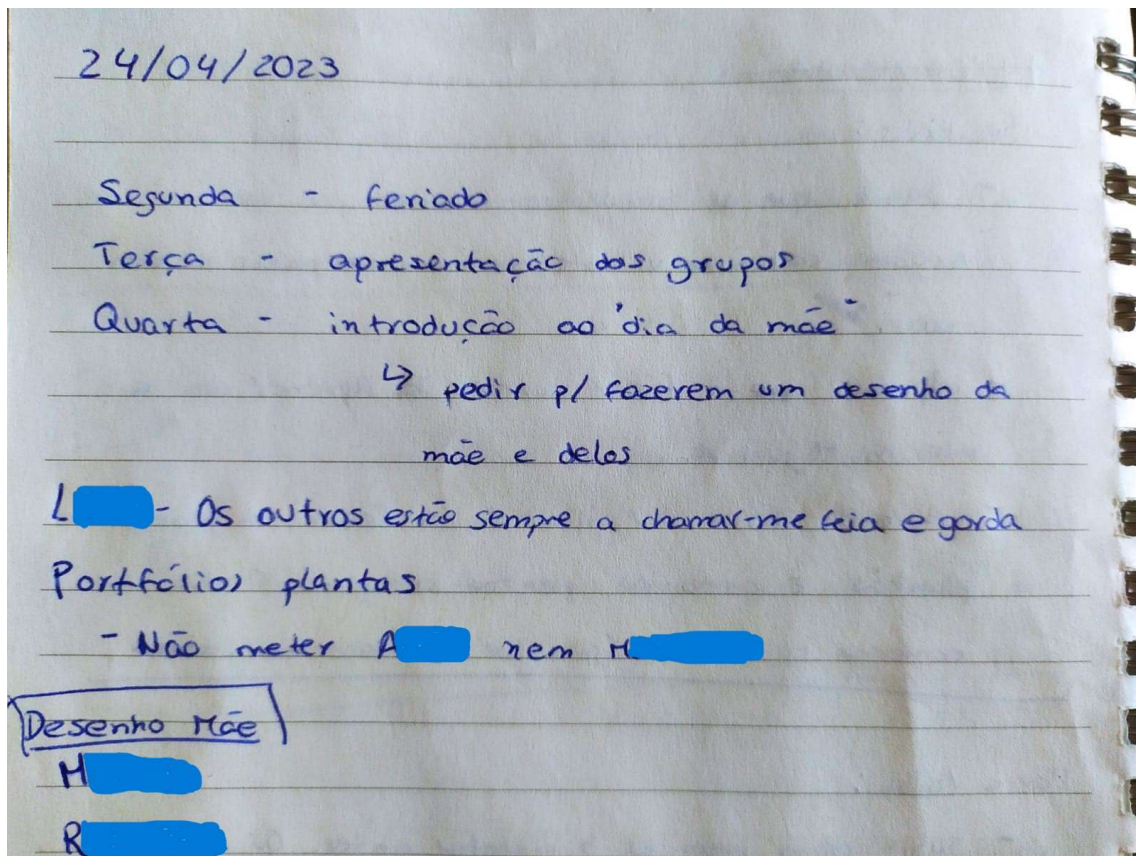 24/04/2023
Segunda - feriado
Terça - apresentação dos grupos
Quarta - introdução ao "dia da mãe"
↳ pedir p/ fazerem um desenho da
mãe e deles
L - Os outros estão sempre a chamar-me feia e gorda
Portfólios plantas
- Não meter A nem M
Desenho Mãe
M
R